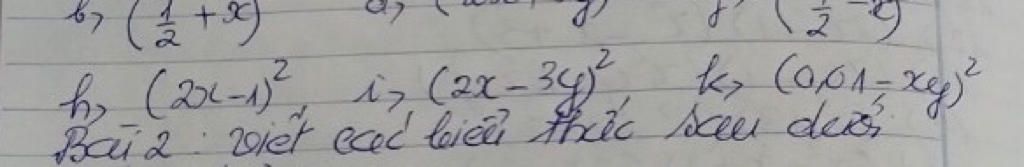 b, (1/2 + x)
(1/2 - x)
h, (2x-1)² i, (2x-3y)² k, (0,01-xy)²
Bài 2: Viết các biểu thức sau dưới